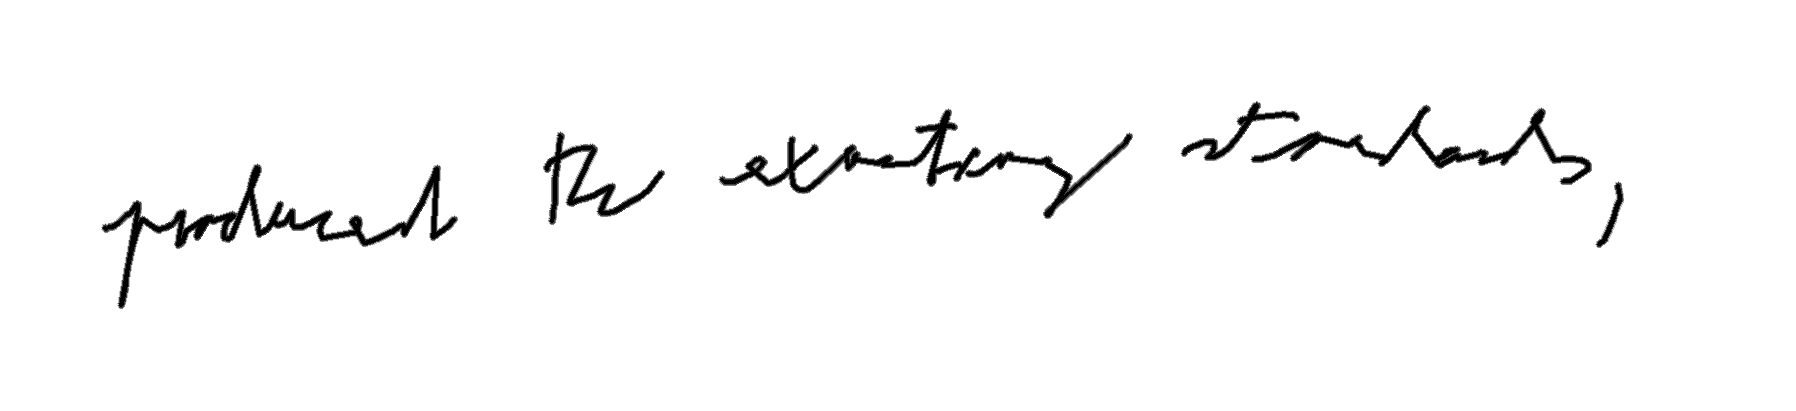 produced the exacting standards,